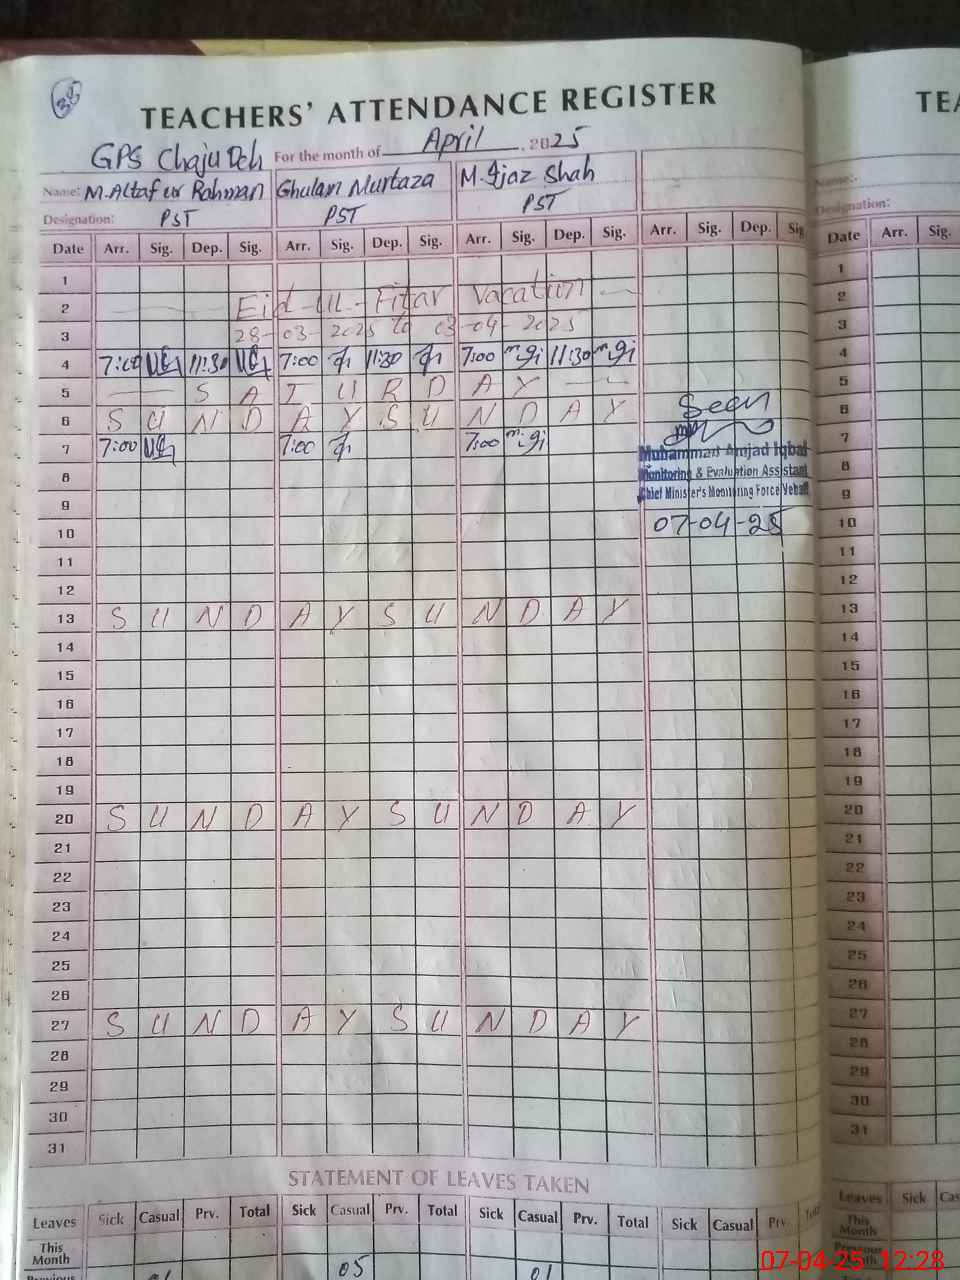 38
TEACHERS' ATTENDANCE REGISTER
GPS Chaju Deh For the month of April, 2025
Name: M. Altaf ur Rahman Ghulam Murtaza M. Ijaz Shah
Designation: PST PST PST
Date Arr. Sig. Dep. Sig. Arr. Sig. Dep. Sig. Arr. Sig. Dep. Sig. Arr. Sig. Dep. Sig
1
2 Eid-Ul-Fitar Vacation
3 28-03-2025 to 03-04-2025
4 7:00 11:30 7:00 11:30 7:00 11:30
5 SATURDAY
6 SUNDAY SUNDAY
7 7:00 7:00 7:00
Seen
Muhammad Amjad Iqbal
Monitoring & Evaluation Assistant
Chief Minister's Monitoring Force Vehari
07-04-25
8
9
10
11
12
13 SUNDAY SUNDAY
14
15
16
17
18
19
20 SUNDAY SUNDAY
21
22
23
24
25
26
27 SUNDAY SUNDAY
28
29
30
31
STATEMENT OF LEAVES TAKEN
Leaves Sick Casual Prv. Total Sick Casual Prv. Total Sick Casual Prv. Total Sick Casual Prv. Total
This Month
Previous 01 05 01
TEA
Name:
Designation:
Date Arr. Sig.
1
2
3
4
5
6
7
8
9
10
11
12
13
14
15
16
17
18
19
20
21
22
23
24
25
26
27
28
29
30
31
Leaves Sick Cas
This Month
Previous
Month
07-04-25 12:28